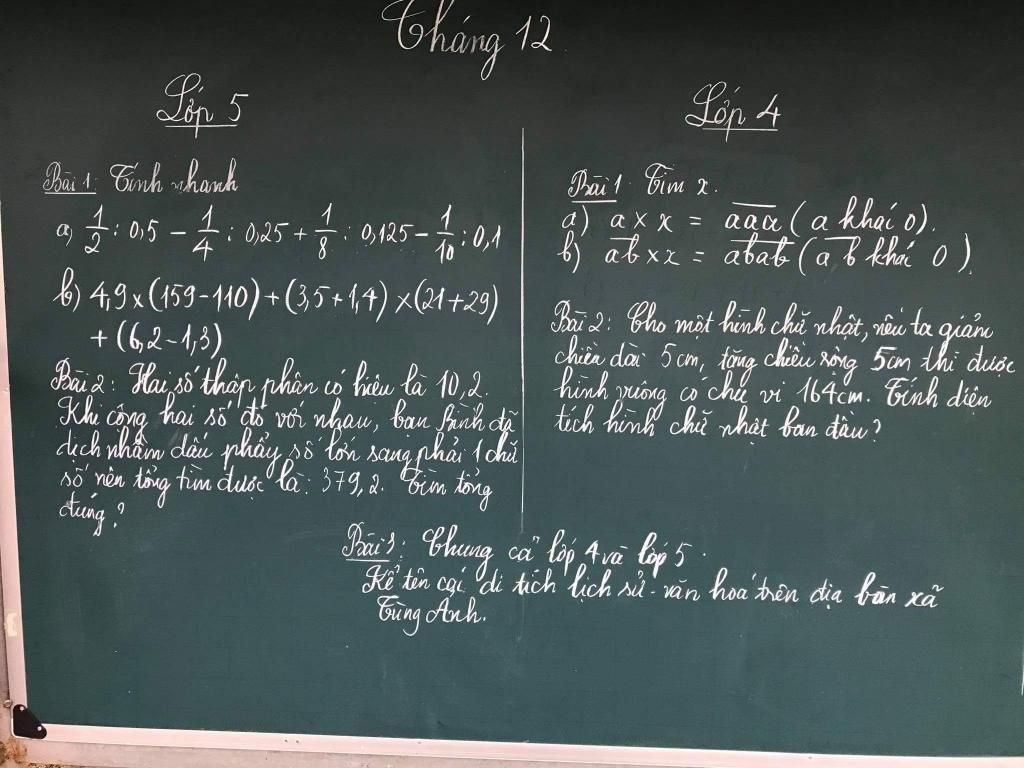 Tháng 12
Lớp 5
Bài 1: Tính nhanh
a) 1/2 : 0,5 - 1/4 : 0,25 + 1/8 : 0,125 - 1/10 : 0,1
b) 4,9 x (159 - 110) + (3,5 + 1,4) x (21 + 29)
+ (6,2 - 1,3)
Bài 2: Hai số thập phân có hiệu là 10,2.
Khi cộng hai số đó với nhau, bạn Bình đã
dịch nhầm dấu phẩy số lớn sang phải 1 chữ
số nên tổng tìm được là: 379,2. Tìm tổng
đúng?
Lớp 4
Bài 1 Tìm x.
a) a x x = a͞a͞a͞ (a khác 0).
b) a͞b͞ x x = a͞b͞a͞b͞ (a͞b͞ khác 0).
Bài 2: Cho một hình chữ nhật, nếu ta giảm
chiều dài 5cm, tăng chiều rộng 5cm thì được
hình vuông có chu vi 164cm. Tính diện
tích hình chữ nhật ban đầu?
Bài 3: Chung cả lớp 4 và lớp 5.
Kể tên các di tích lịch sử - văn hoá trên địa bàn xã
Tùng Anh.